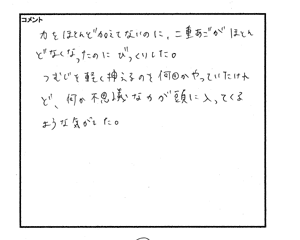 コメント
力をほとんど加えてないのに、二重あごがほとん
どなくなったのにびっくりした。
つむじを軽く押えるのを何回かやっていたけれ
ど、何か不思議な力が頭に入ってくる
ような気がした。